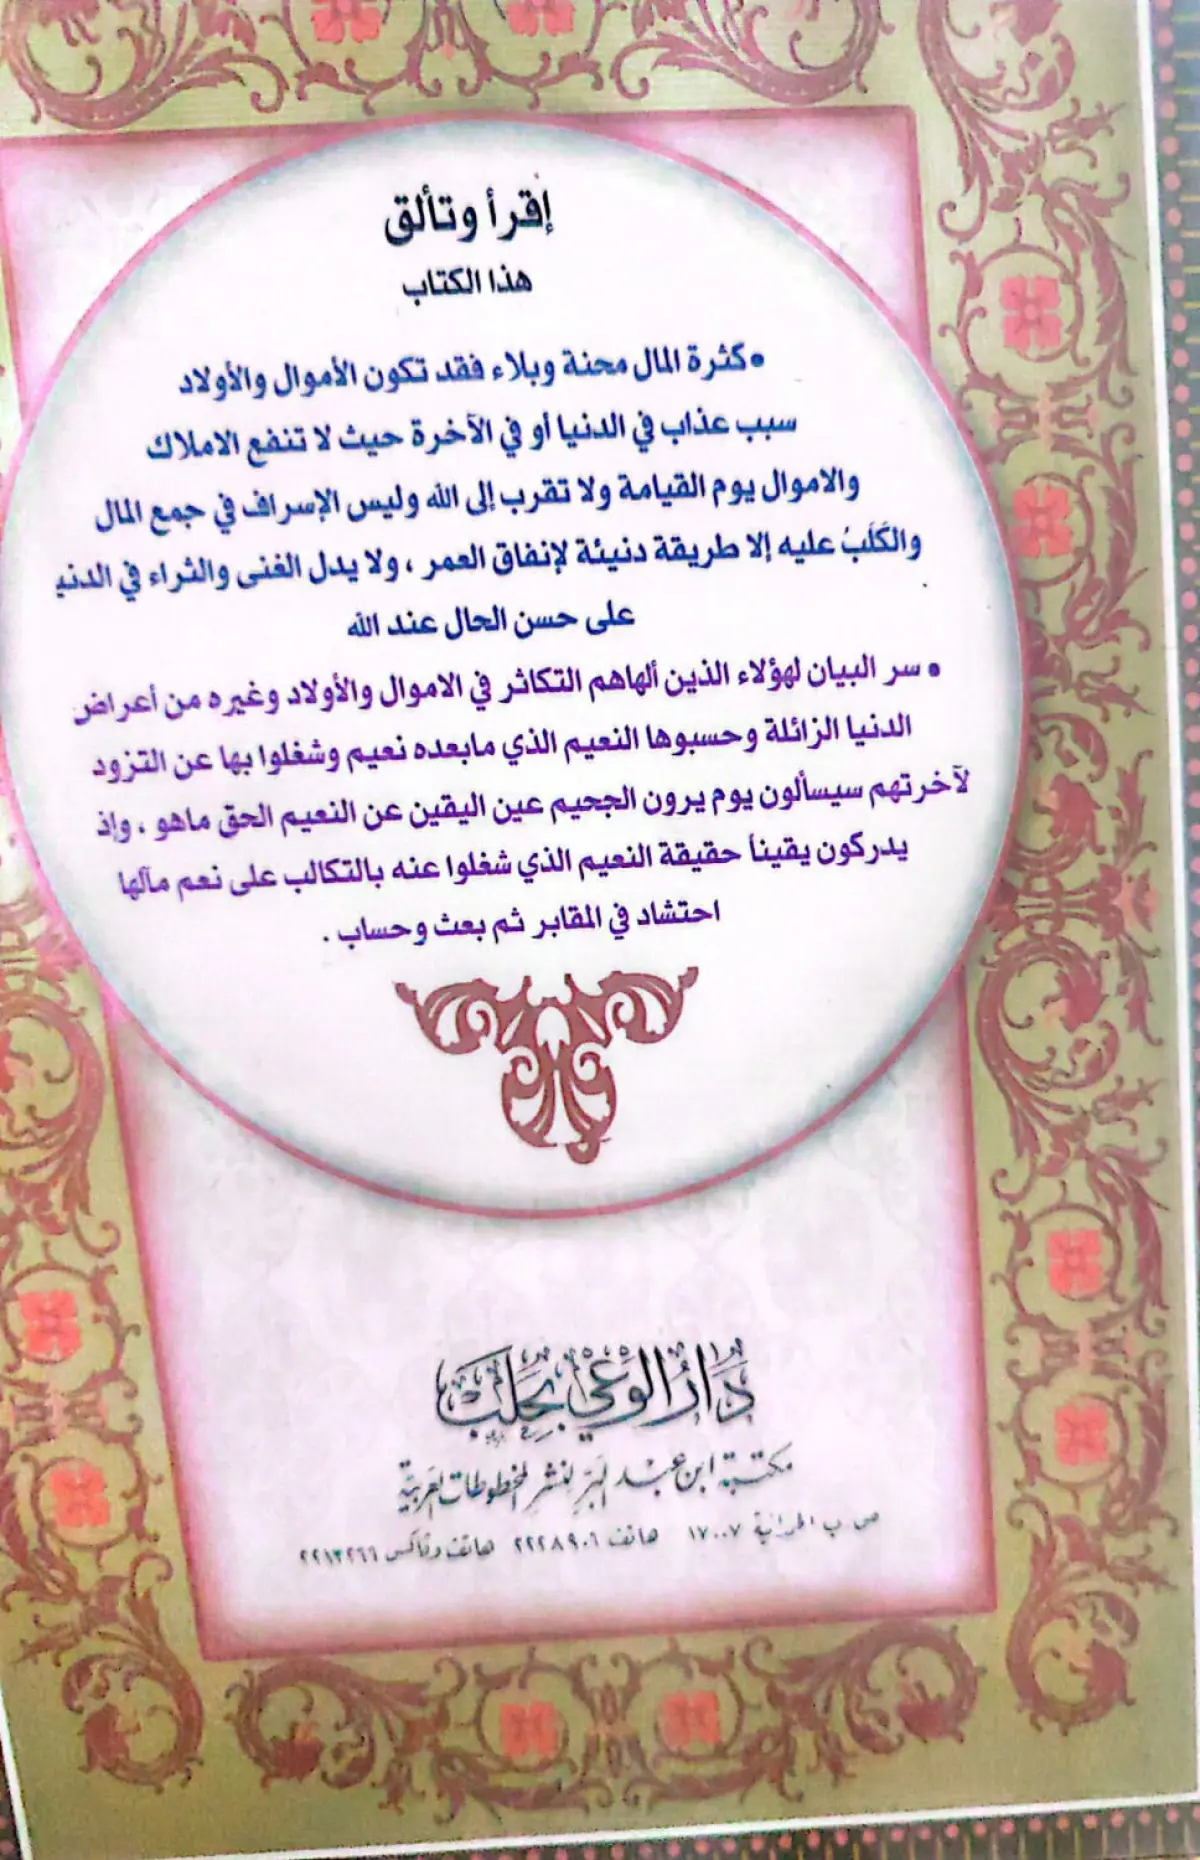 إقرأ وتألق
هذا الكتاب
• كثرة المال محنة وبلاء فقد تكون الأموال والأولاد
سبب عذاب في الدنيا أو في الآخرة حيث لا تنفع الاملاك
والاموال يوم القيامة ولا تقرب إلى الله وليس الإسراف في جمع المال
والكَلَبُ عليه إلا طريقة دنيئة لإنفاق العمر ، ولا يدل الغنى والثراء في الدني
على حسن الحال عند الله
• سر البيان لهؤلاء الذين ألهاهم التكاثر في الاموال والأولاد وغيره من أعراض
الدنيا الزائلة وحسبوها النعيم الذي مابعده نعيم وشغلوا بها عن التزود
لآخرتهم سيسألون يوم يرون الجحيم عين اليقين عن النعيم الحق ماهو ، وإذ
يدركون يقيناً حقيقة النعيم الذي شغلوا عنه بالتكالب على نعم مآلها
احتشاد في المقابر ثم بعث وحساب .
دَارُ الوَعْي بِحَلَب
مكتبة ابن عبد البر لنشر المخطوطات العربية
ص ب الحمدانية ١٧٠٠٧ هاتف ٢٢٢٨٩٠٦ هاتف وفاكس